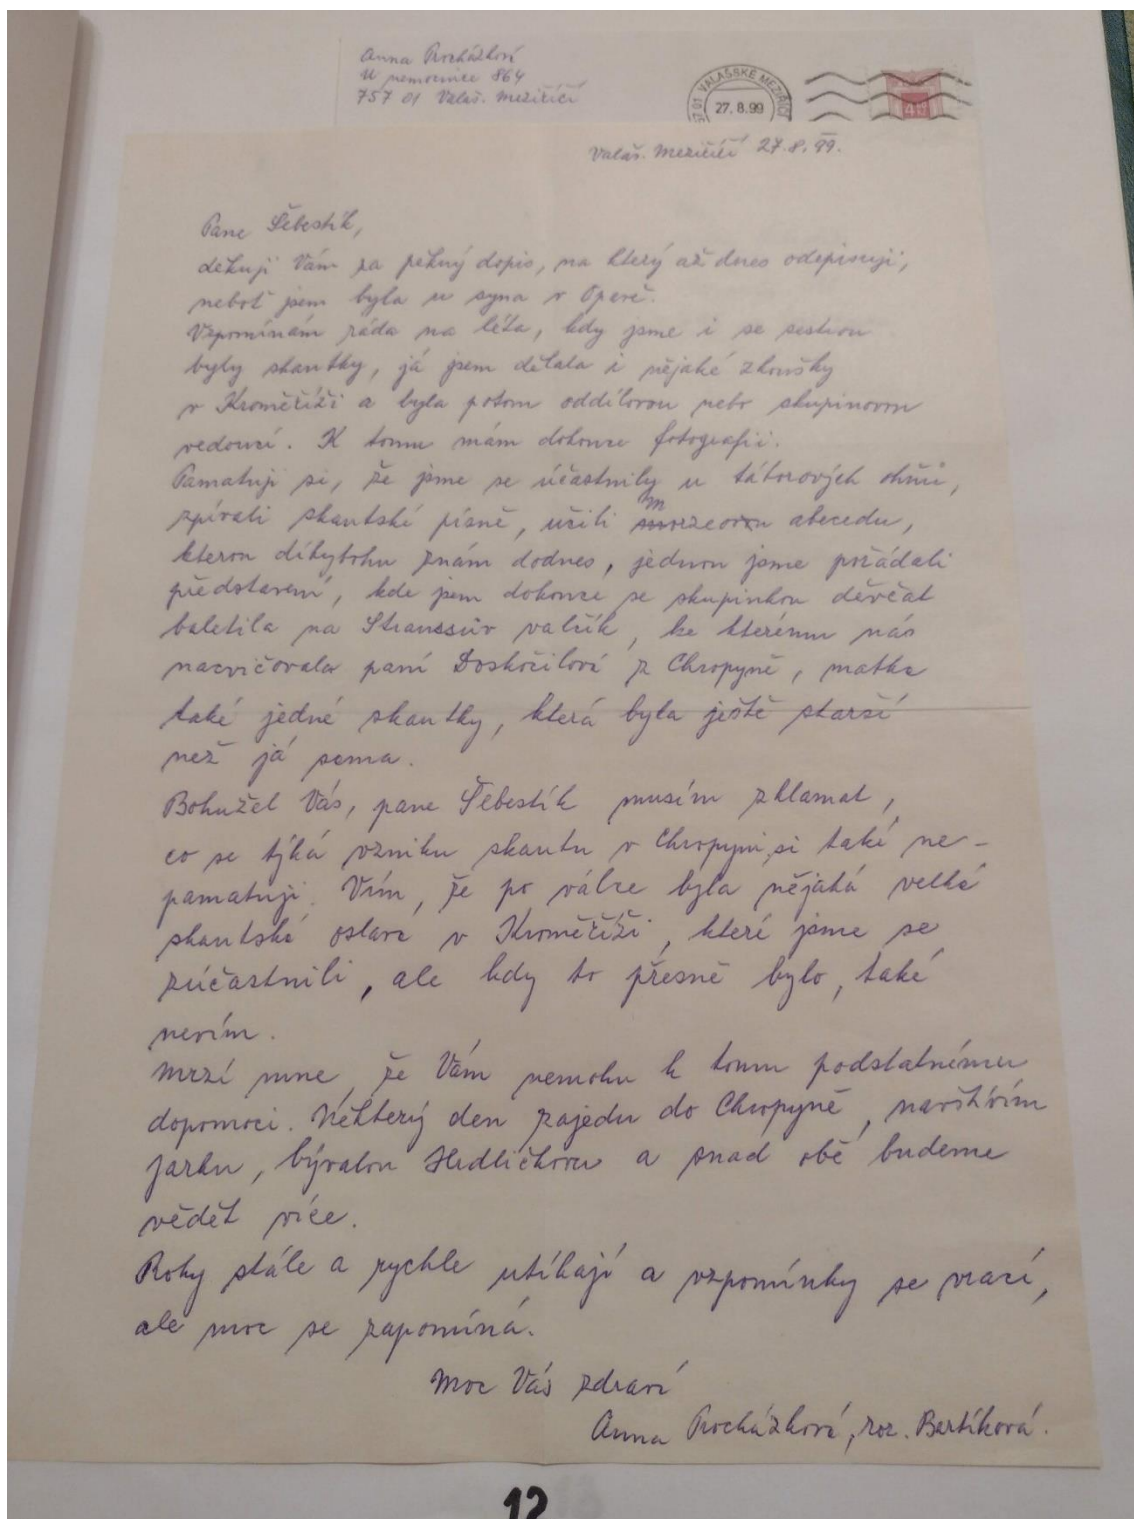 Anna Procházková
U nemocnice 864
757 01 Valaš. Meziříčí
757 01 VALAŠSKÉ MEZIŘÍČÍ
27.8.99
4
Valaš. Meziříčí 27.8.99.
Pane Šebestík,
děkuji Vám za pěkný dopis, na který až dnes odepisuji,
neboť jsem byla u syna v Opavě.
Vzpomínám ráda na léta, kdy jsme i se sestrou
byly skautky, já jsem dělala i nějaké zkoušky
v Kroměříži a byla potom oddílovou nebo skupinovou
vedoucí. K tomu mám dokonce fotografii.
Pamatuji si, že jsme se účastnily u táborových ohňů,
zpívali skautské písně, učili Morzeovu abecedu,
kterou díkybohu znám dodnes, jednou jsme pořádali
představení, kde jsem dokonce se skupinkou děvčat
baletila na Straussův valčík, ke kterému nás
nacvičovala paní Doskočilová z Chropyně, matka
také jedné skautky, která byla ještě starší
než já sama.
Bohužel Vás, pane Šebestík musím zklamat,
co se týká vzniku skautu v Chropyni, si také ne-
pamatuji. Vím, že po válce byla nějaká velká
skautská oslava v Kroměříži, které jsme se
zúčastnili, ale kdy to přesně bylo, také
nevím.
Mrzí mne, že Vám nemohu k tomu podstatnému
dopomoci. Některý den zajedu do Chropyně, navštívím
Jarku, bývalou Hrdličkovu a snad obě budeme
vědět více.
Roky stále a rychle utíkají a vzpomínky se vrací,
ale moc se zapomíná.
Moc Vás zdraví
Anna Procházková, roz. Bartíková.
12